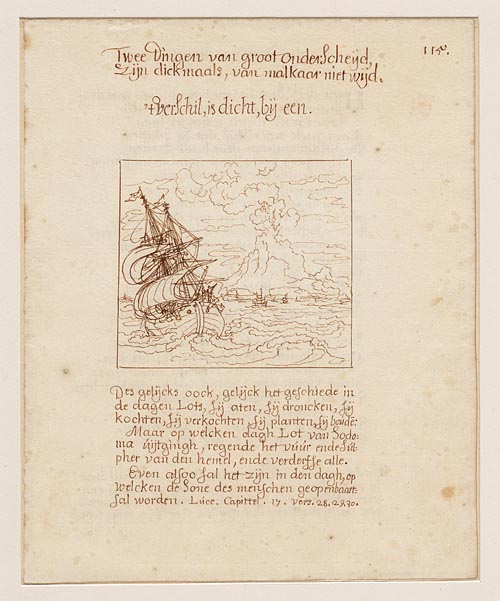 115.
Twee Dingen van groot Onderscheijd,
Zijn dickmaals, van malkaar niet wijd.
't Verschil, is dicht, bij een.
Des gelijcks oock, gelijck het geschiede in
de dagen Lots, sij aten, sij droncken, sij
kochten, sij verkochten, sij planten, sij boude:
Maar op welcken dagh Lot van Sodo-
ma úijtgingh, regende het vúúr ende súl-
pher van den hemel, ende verderfse alle.
Even alsoo sal het zijn in den dagh, op
welcken de Sone des menschen geopenbaart
sal worden. Lúce. Capittel. 17. vers. 28. 29. 30.